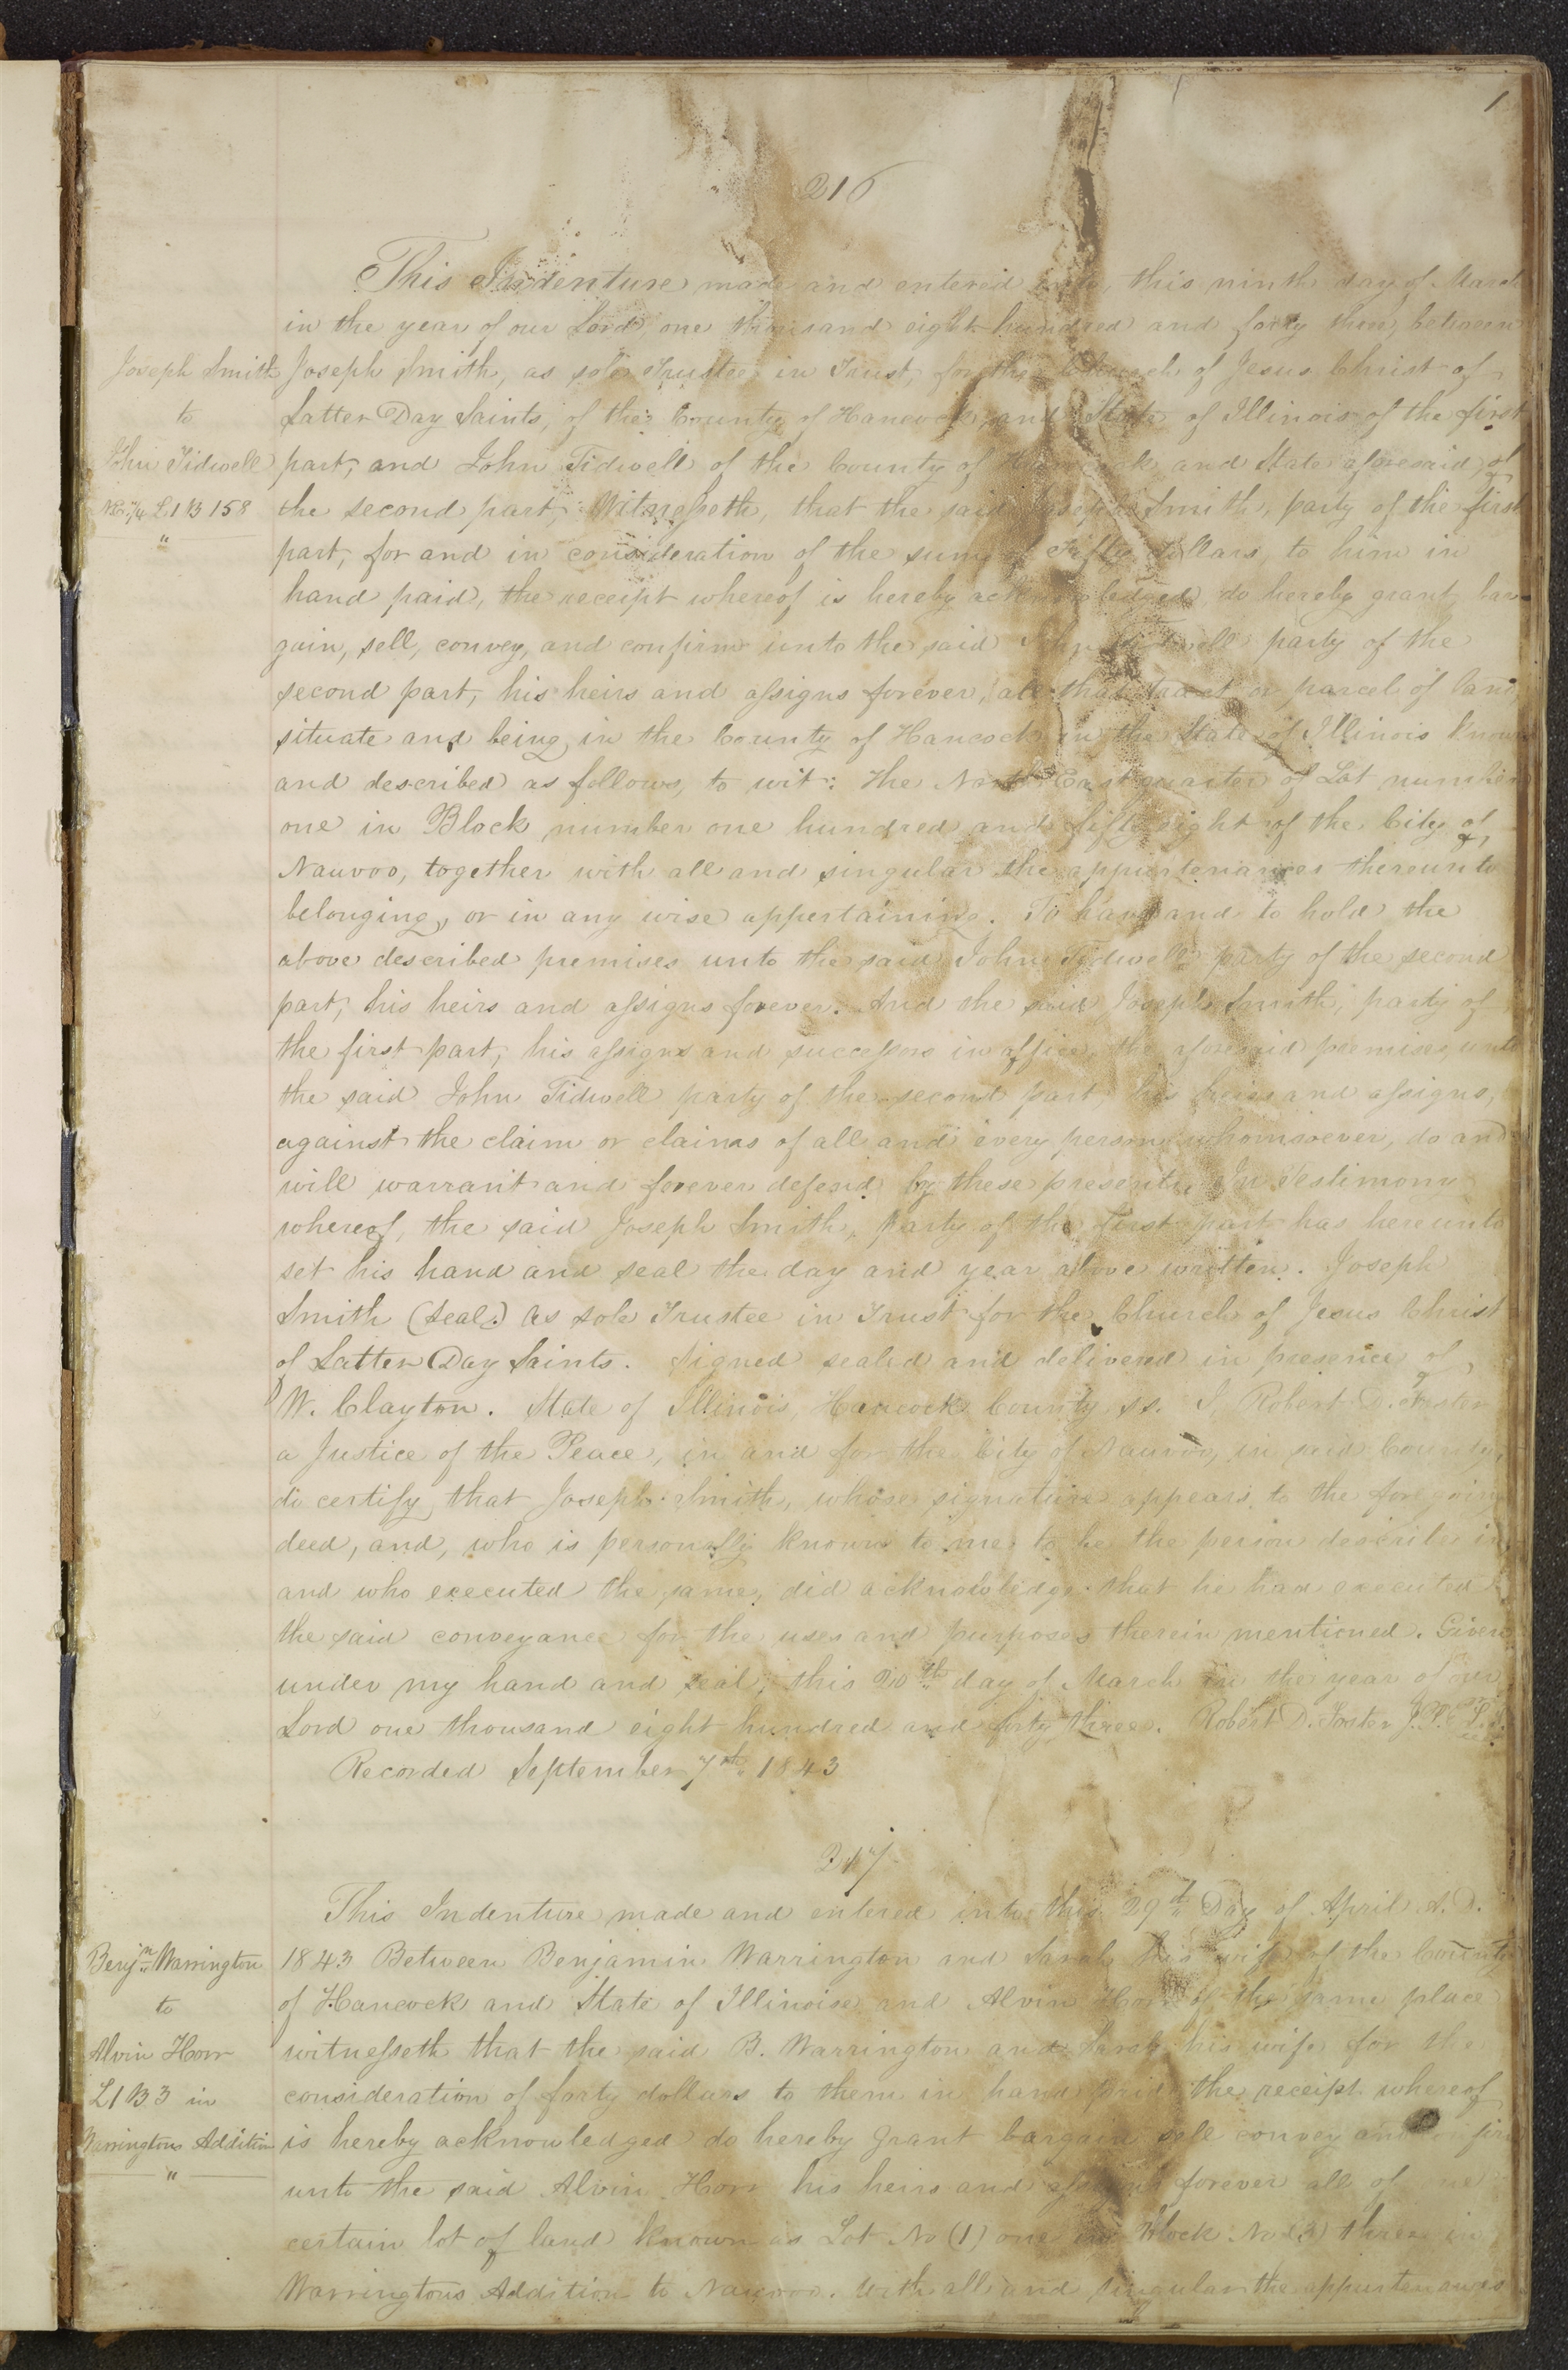 1
216
This Indenture made and entered into, this ninth day of March
in the year of our Lord, one thousand eight hundred and forty three, between
Joseph Smith
to
John Tidwell
NE 1/4 L1 B 158
"
Joseph Smith, as sole Trustee in Trust, for the Church of Jesus Christ of
Latter Day Saints, of the County of Hancock, and State of Illinois of the first
part, and John Tidwell of the County of Hancock and State aforesaid, of
the second part, Witnesseth, that the said Joseph Smith, party of the first
part, for and in consideration of the sum of Fifty Dollars, to him in
hand paid, the receipt whereof is hereby acknowledged, do hereby grant, bar-
gain, sell, convey, and confirm unto the said John Tidwell party of the
second part, his heirs and assigns forever, all that tract or parcel of land,
situate and being, in the County of Hancock in the State of Illinois known
and described as follows, to wit: The North East quarter of Lot number
one in Block number one hundred and fifty eight of the City of
Nauvoo, together with all and singular the appurtenances thereunto
belonging, or in any wise appertaining. To have and to hold the
above described premises unto the said John Tidwell party of the second
part, his heirs and assigns forever. And the said Joseph Smith, party of
the first part, his assigns and successors in office, the aforesaid premises, unto
the said John Tidwell party of the second part, his heirs and assigns,
against the claim or claims of all and every person whomsoever, do and
will warrant and forever defend by these presents. In Testimony
whereof, the said Joseph Smith, party of the first part has hereunto
set his hand and seal the day and year above written. Joseph
Smith (Seal.) As sole Trustee in Trust for the Church of Jesus Christ
of Latter Day Saints. Signed sealed and delivered in presence of,
W. Clayton. State of Illinois, Hancock County ss. I, Robert D. Foster
a Justice of the Peace, in and for the City of Nauvoo, in said County,
do certify, that Joseph Smith, whose signature appears to the foregoing
deed, and, who is personally known to me, to be the person describe in
and who executed the same, did acknowledge that he had executed
the said conveyance for the uses and purposes therein mentioned. Given
under my hand and seal, this 20th day of March in the year of our
Lord one thousand eight hundred and forty three. Robert D. Foster J.P. L.S.
Recorded September 7th 1843
217
This Indenture made and entered into this 29th Day of April A.D.
Benjn Warrington
to
Alvin Horr
L1 B3 in
Warringtons Addition
"
1843 Between Benjamin Warrington and Sarah his wife of the County
of Hancock and State of Illinoise and Alvin Horr of the same place
witnesseth that the said B. Warrington and Sarah his wife for the
consideration of forty dollars to them in hand paid the receipt whereof
is hereby acknowledged do hereby Grant bargain sell convey and confirm
unto the said Alvin Horr his heirs and assigns forever all of one
certain lot of land known as Lot No (1) one in Block No (3) three in
Warringtons Addition to Nauvoo. With all and singular the appurtenances